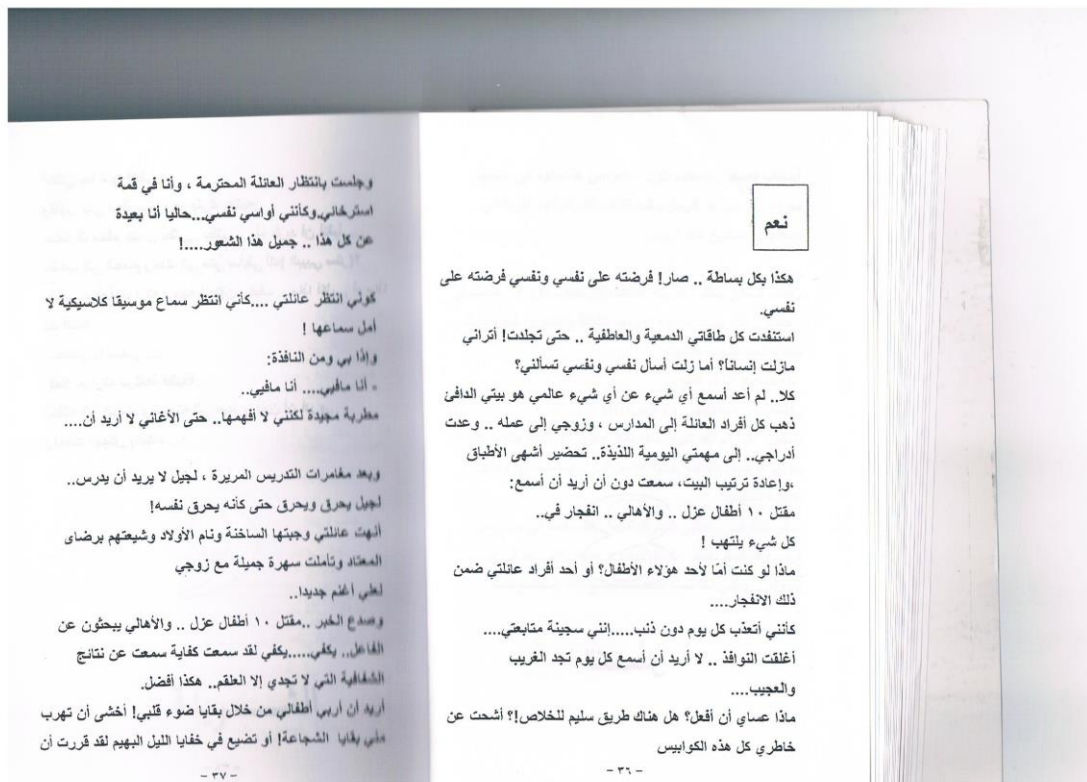 نعم
هكذا بكل بساطة .. صار! فرضته على نفسي ونفسي فرضته على
نفسي.
استنفدت كل طاقاتي الدمعية والعاطفية .. حتى تجلدت! أتراني
مازلت إنساناً؟ أما زلت أسأل نفسي ونفسي تسألني؟
كلا.. لم أعد أسمع أي شيء عن أي شيء عالمي هو بيتي الدافئ
ذهب كل أفراد العائلة إلى المدارس ، وزوجي إلى عمله .. وعدت
أدراجي.. إلى مهمتي اليومية اللذيذة.. تحضير أشهى الأطباق
،وإعادة ترتيب البيت، سمعت دون أن أريد أن أسمع:
مقتل ١٠ أطفال عزل .. والأهالي .. انفجار في..
كل شيء يلتهب !
ماذا لو كنت أمّا لأحد هؤلاء الأطفال؟ أو أحد أفراد عائلتي ضمن
ذلك الانفجار....
كأنني أتعذب كل يوم دون ذنب.....إنني سجينة متابعتي....
أغلقت النوافذ .. لا أريد أن أسمع كل يوم تجد الغريب
والعجيب....
ماذا عساي أن أفعل؟ هل هناك طريق سليم للخلاص!؟ أشحت عن
خاطري كل هذه الكوابيس
- ٣٦ -
وجلست بانتظار العائلة المحترمة ، وأنا في قمة
استرخائي.وكأنني أواسي نفسي...حاليا أنا بعيدة
عن كل هذا .. جميل هذا الشعور....!
كوني انتظر عائلتي ....كأني انتظر سماع موسيقا كلاسيكية لا
أمل سماعها !
وإذا بي ومن النافذة:
- أنا مافيي.... أنا مافيي..
مطربة مجيدة لكنني لا أفهمها.. حتى الأغاني لا أريد أن....
وبعد مغامرات التدريس المريرة ، لجيل لا يريد أن يدرس..
لجيل يحرق ويحرق حتى كأنه يحرق نفسه!
أنهت عائلتي وجبتها الساخنة ونام الأولاد وشيعتهم برضاى
المعتاد وتأملت سهرة جميلة مع زوجي
لعلي أغنم جديدا..
وصدع الخبر ..مقتل ١٠ أطفال عزل .. والأهالي يبحثون عن
الفاعل.. يكفي.....يكفي لقد سمعت كفاية سمعت عن نتائج
الشفافية التي لا تجدي إلا العلقم.. هكذا أفضل.
أريد أن أربي أطفالي من خلال بقايا ضوء قلبي! أخشى أن تهرب
مني بقايا الشجاعة! أو تضيع في خفايا الليل البهيم لقد قررت أن
- ٣٧ -